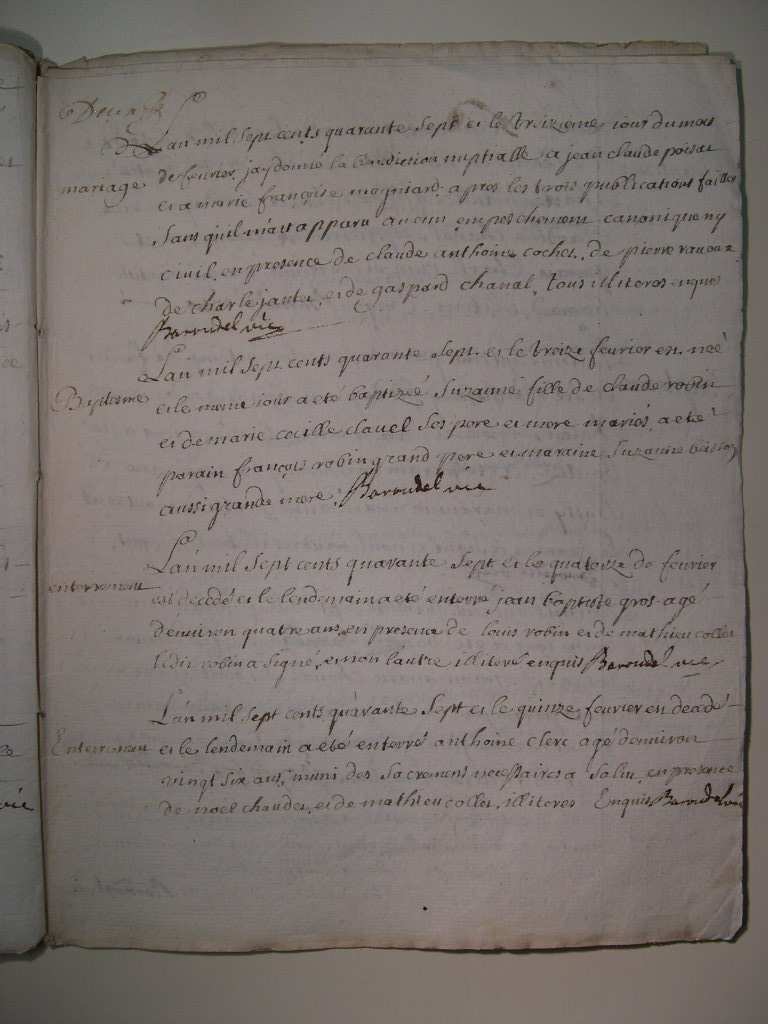 Lan mil sept cents quarante sept et le troizieme iour du mois
mariage de fevrier, jay donné la benediction nuptialle a jean claude poisat
et a marie françoise magniard, apres les trois publications faittes
sans quil m'ait apparu aucun empeschement canonique ny
civil, en presence de claude anthoine coches, de pierre
de charle jantet, et de gaspard chanal, tous illiteres enquis
Baroudel vic
Lan mil sept cents quarante sept et le treize fevrier est neé
Baptesme et le meme jour a eté baptizeé suzanne fille de claude robin
et de marie cecille clavel ses pere et mere mariés, a eté
parain françois robin grand pere et maraine suzanne
aussi grande mere. Baroudel vic
Lan mil sept cents quarante sept et le quatorze de fevrier
enterrement est decedé et le lendemain a eté enterré jean baptiste gros agé
denviron quatre ans, en presence de louis robin et de mathieu collet
ledit robin a signé, et non l'autre illiteré enquis Baroudel vic
Lan mil sept cents quarante sept et le quinze fevrier est decedé
Enterrement et le lendemain a eté enterré anthoine clerc agé denviron
vingt six ans, muni des sacremens necessaires a salut, en presence
de noel chaudet, et de mathieu collet, illiteres Enquis Baroudel vic